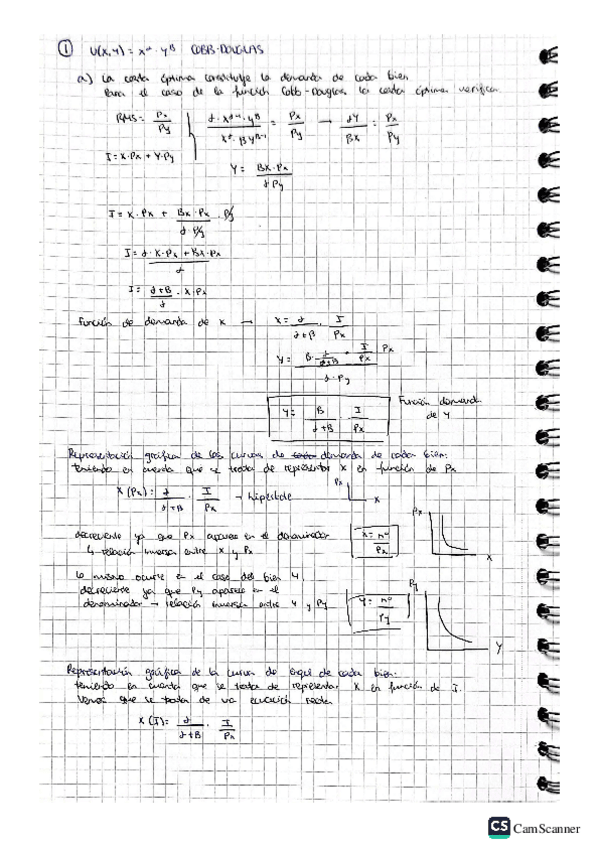 ① U(x,y) = x^α · y^β COBB-DOUGLAS
a) La cesta óptima constituye la demanda de cada bien
Para el caso de la función Cobb-Douglas la cesta óptima verifica
RMS = Px/Py } α·x^(α-1)·y^β / x^α·β y^(β-1) = Px/Py → αY/βX = Px/Py
I = X·Px + Y·Py
Y = βX·Px / αPy
I = X·Px + βX·Px / αPy · Py
I = α·X·Px + βX·Px / α
I = α+β / α · X·Px
Función de demanda de X → X = α/α+β · I/Px
Y = β · α/α+β · I/Px · Px / α·Py
Y = β/α+β · I/Px Función demanda de Y
Representación gráfica de las curvas de demanda de cada bien:
teniendo en cuenta que se trata de representar X en función de Px
X (Px) = α/α+β · I/Px → hipérbole Px X
decreciente ya que Px aparece en el denominador X = nº/Px Px X
↳ relación inversa entre X y Px
Lo mismo ocurre en el caso del bien Y.
decreciente ya que Py aparece en el
denominador → relación inversa entre Y y Py Y = nº/Py Py Y
Representación gráfica de la curva de engel de cada bien:
teniendo en cuenta que se trata de representar X en función de I.
Vemos que se trata de una ecuación recta
X (I) = α/α+β · I/Px
CS CamScanner